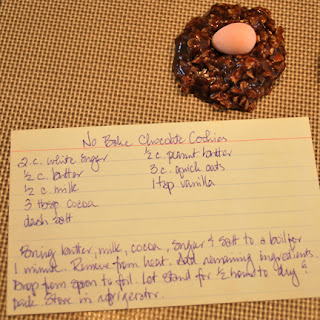 No Bake Chocolate Cookies
2 c. white sugar
½ c. butter
½ c. milk
3 tbsp cocoa
dash salt
½ c. peanut butter
3 c. quick oats
1 tsp vanilla
Bring butter, milk, cocoa, sugar & salt to a boil for
1 minute. Remove from heat. Add remaining ingredients.
Drop from spoon to foil. Let stand for ½ hour to dry &
Store in refrigerator.